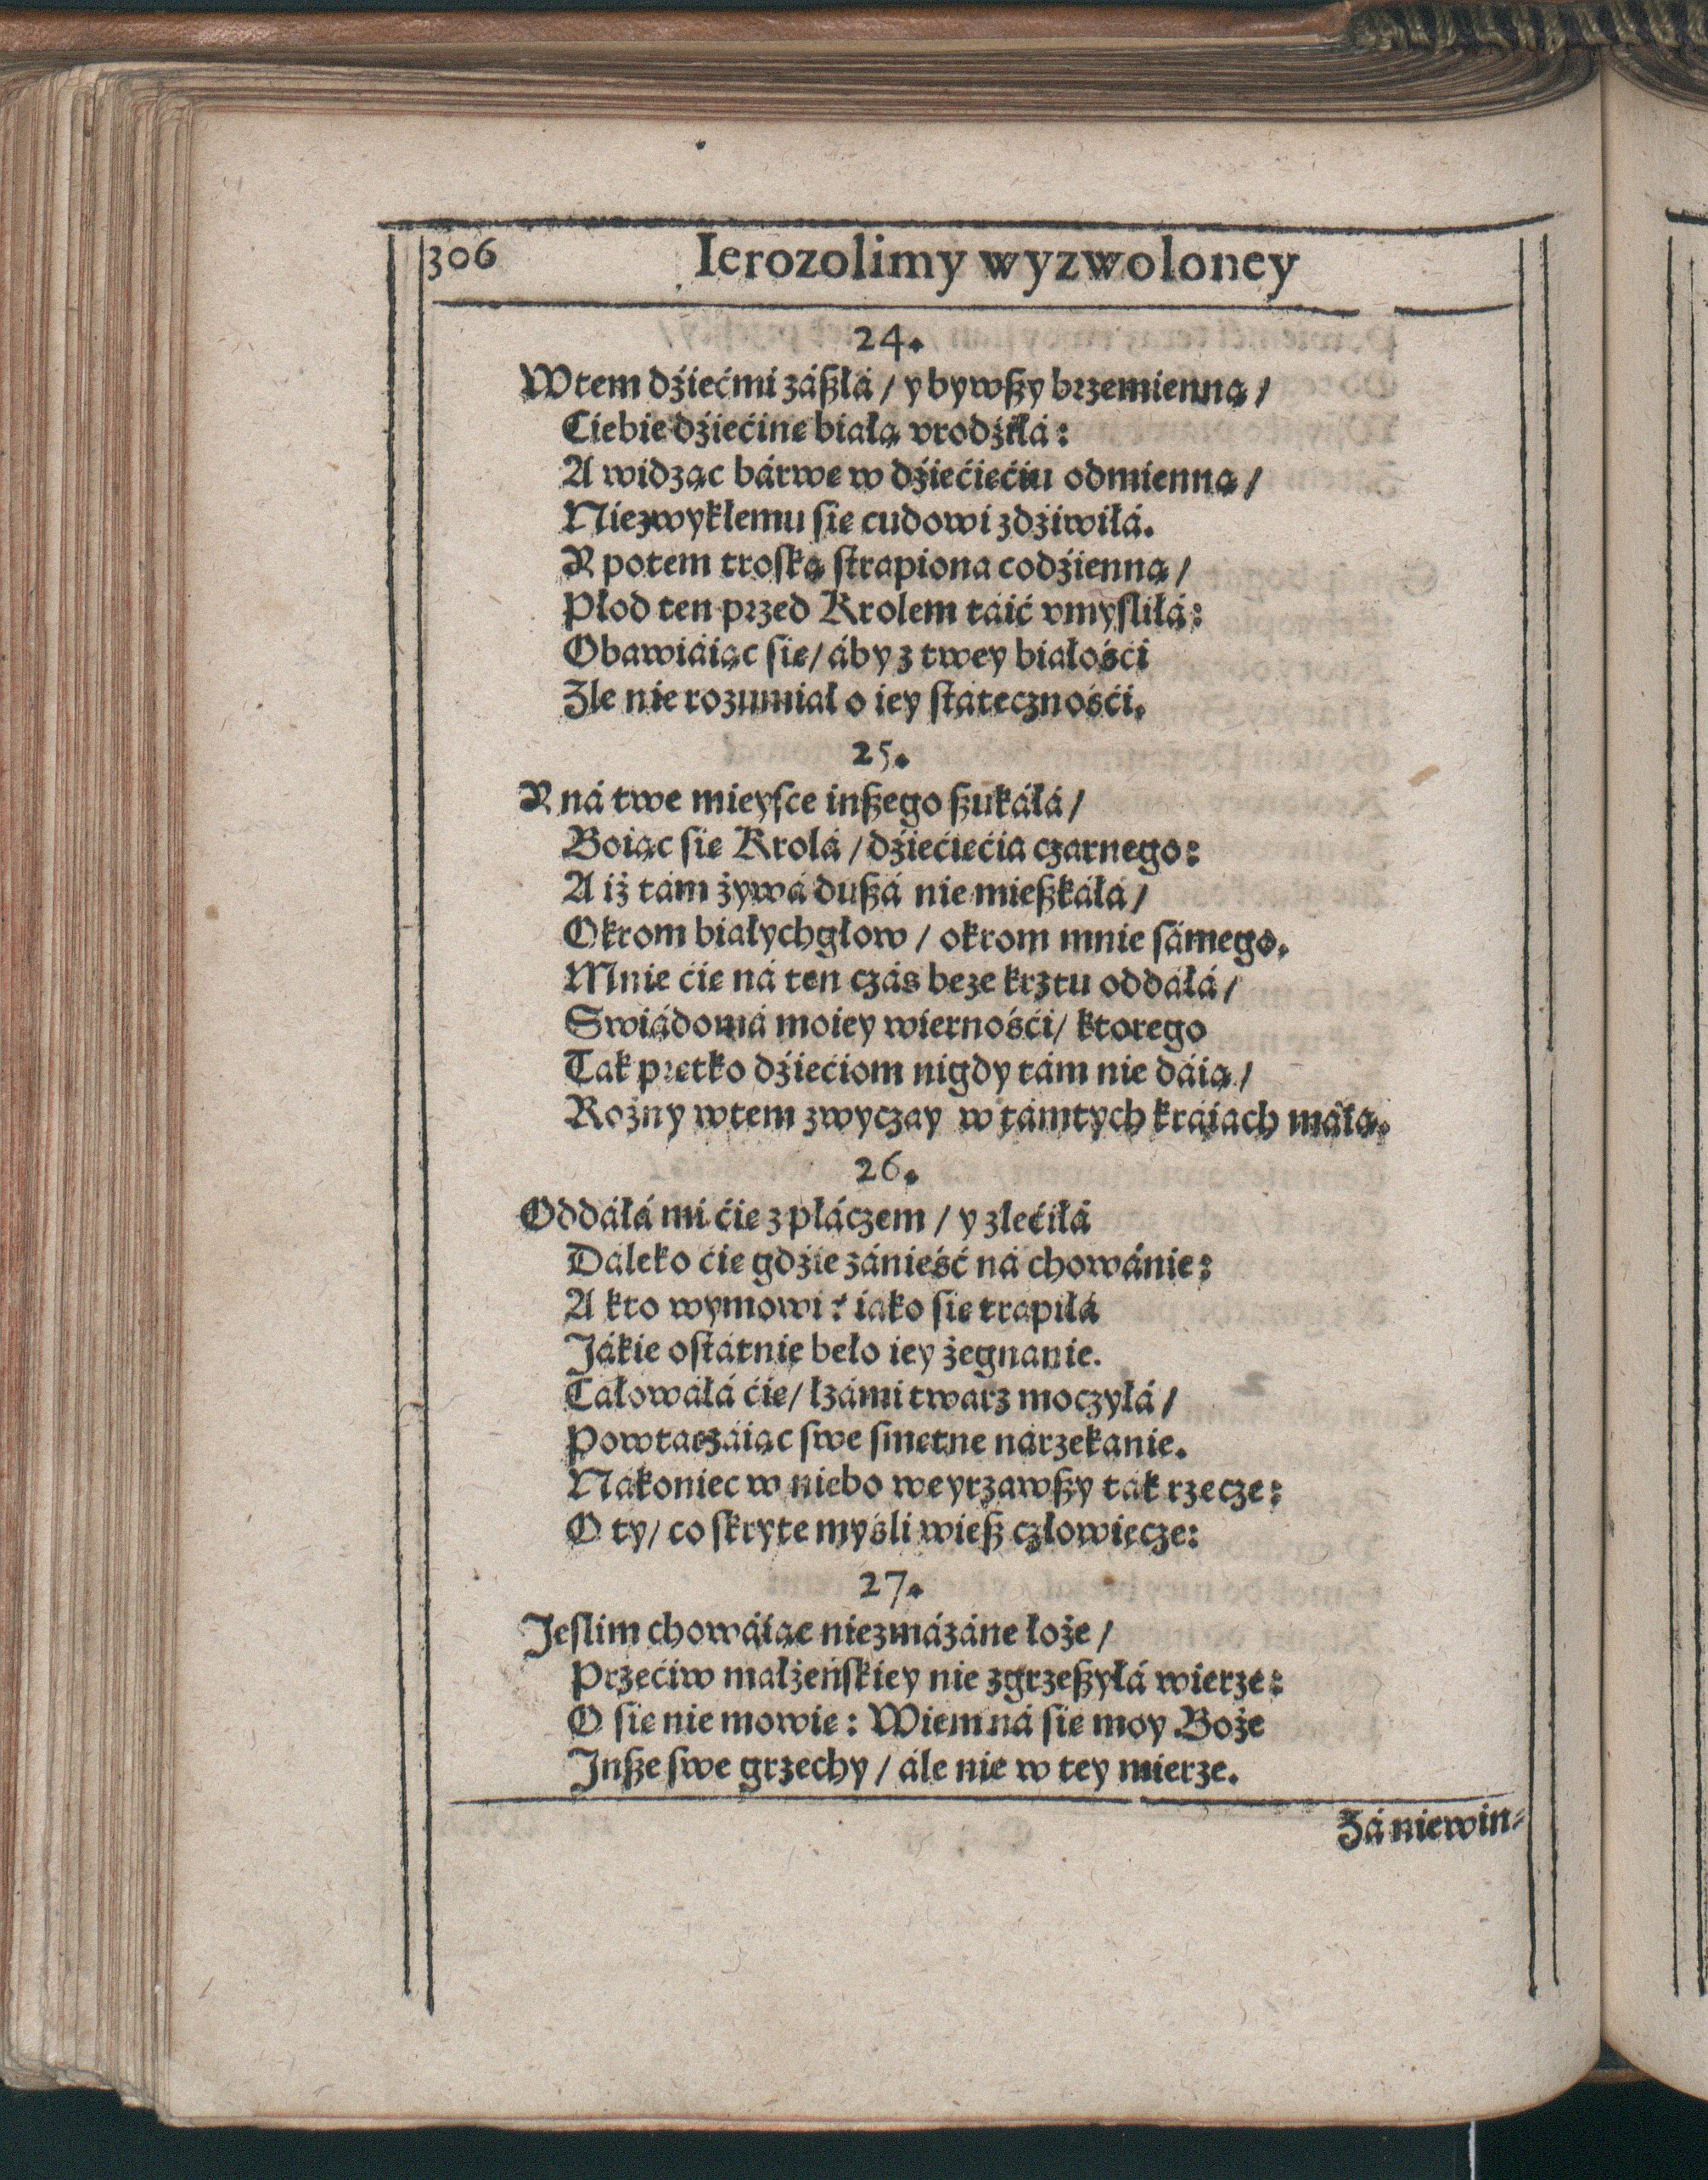 306
Ierozolimy wyzwoloney
24.
Wtem dźiećmi zászłá / y bywszy brzemienną /
Ciebie dźiećinę białą vrodźiłá:
A widząc bárwę w dźiećięćiu odmienną /
Niezwykłemu się cudowi zdźiwiłá.
Y potem troską strapiona codźienną /
Płod ten przed Krolem táić vmysliłá:
Obawiáiąc się / áby z twey białośći
Zle nie rozumiał o iey státecznośći.
25.
Y ná twe mieysce inszego szukáłá /
Boiąc się Krolá / dźiećięćia czarnego:
A iż tám żywá duszá nie mieszkáłá /
Okrom białychgłow / okrom mnie sámego.
Mnie ćię ná ten czás beze krztu oddáłá /
Swiádomá moiey wiernośći / ktorego
Tak prętko dźiećiom nigdy tám nie dáią /
Rożny wtem zwyczay w támtych kráiach máią.
26.
Oddáłá mi ćię z płáczem / y zlećiłá
Dáleko ćię gdźie zánieść ná chowánie:
A kto wymowi? iáko się trapiłá
Jákie ostátnie beło iey żegnanie.
Całowáłá ćię / łzámi twarz moczyłá /
Powtarzáiąc swe smętne nárzekanie.
Nákoniec w niebo weyrzawszy ták rzecze:
O ty / co skryte myśli wiesz człowiecze:
27.
Jeslim chowáiąc niezmázáne łoże /
Przećiw małżeńskiey nie zgrzeszyłá wierze:
O się nie mowię: Wiem ná się moy Boże
Jnsze swe grzechy / ále nie w tey mierze.
Zá niewin-